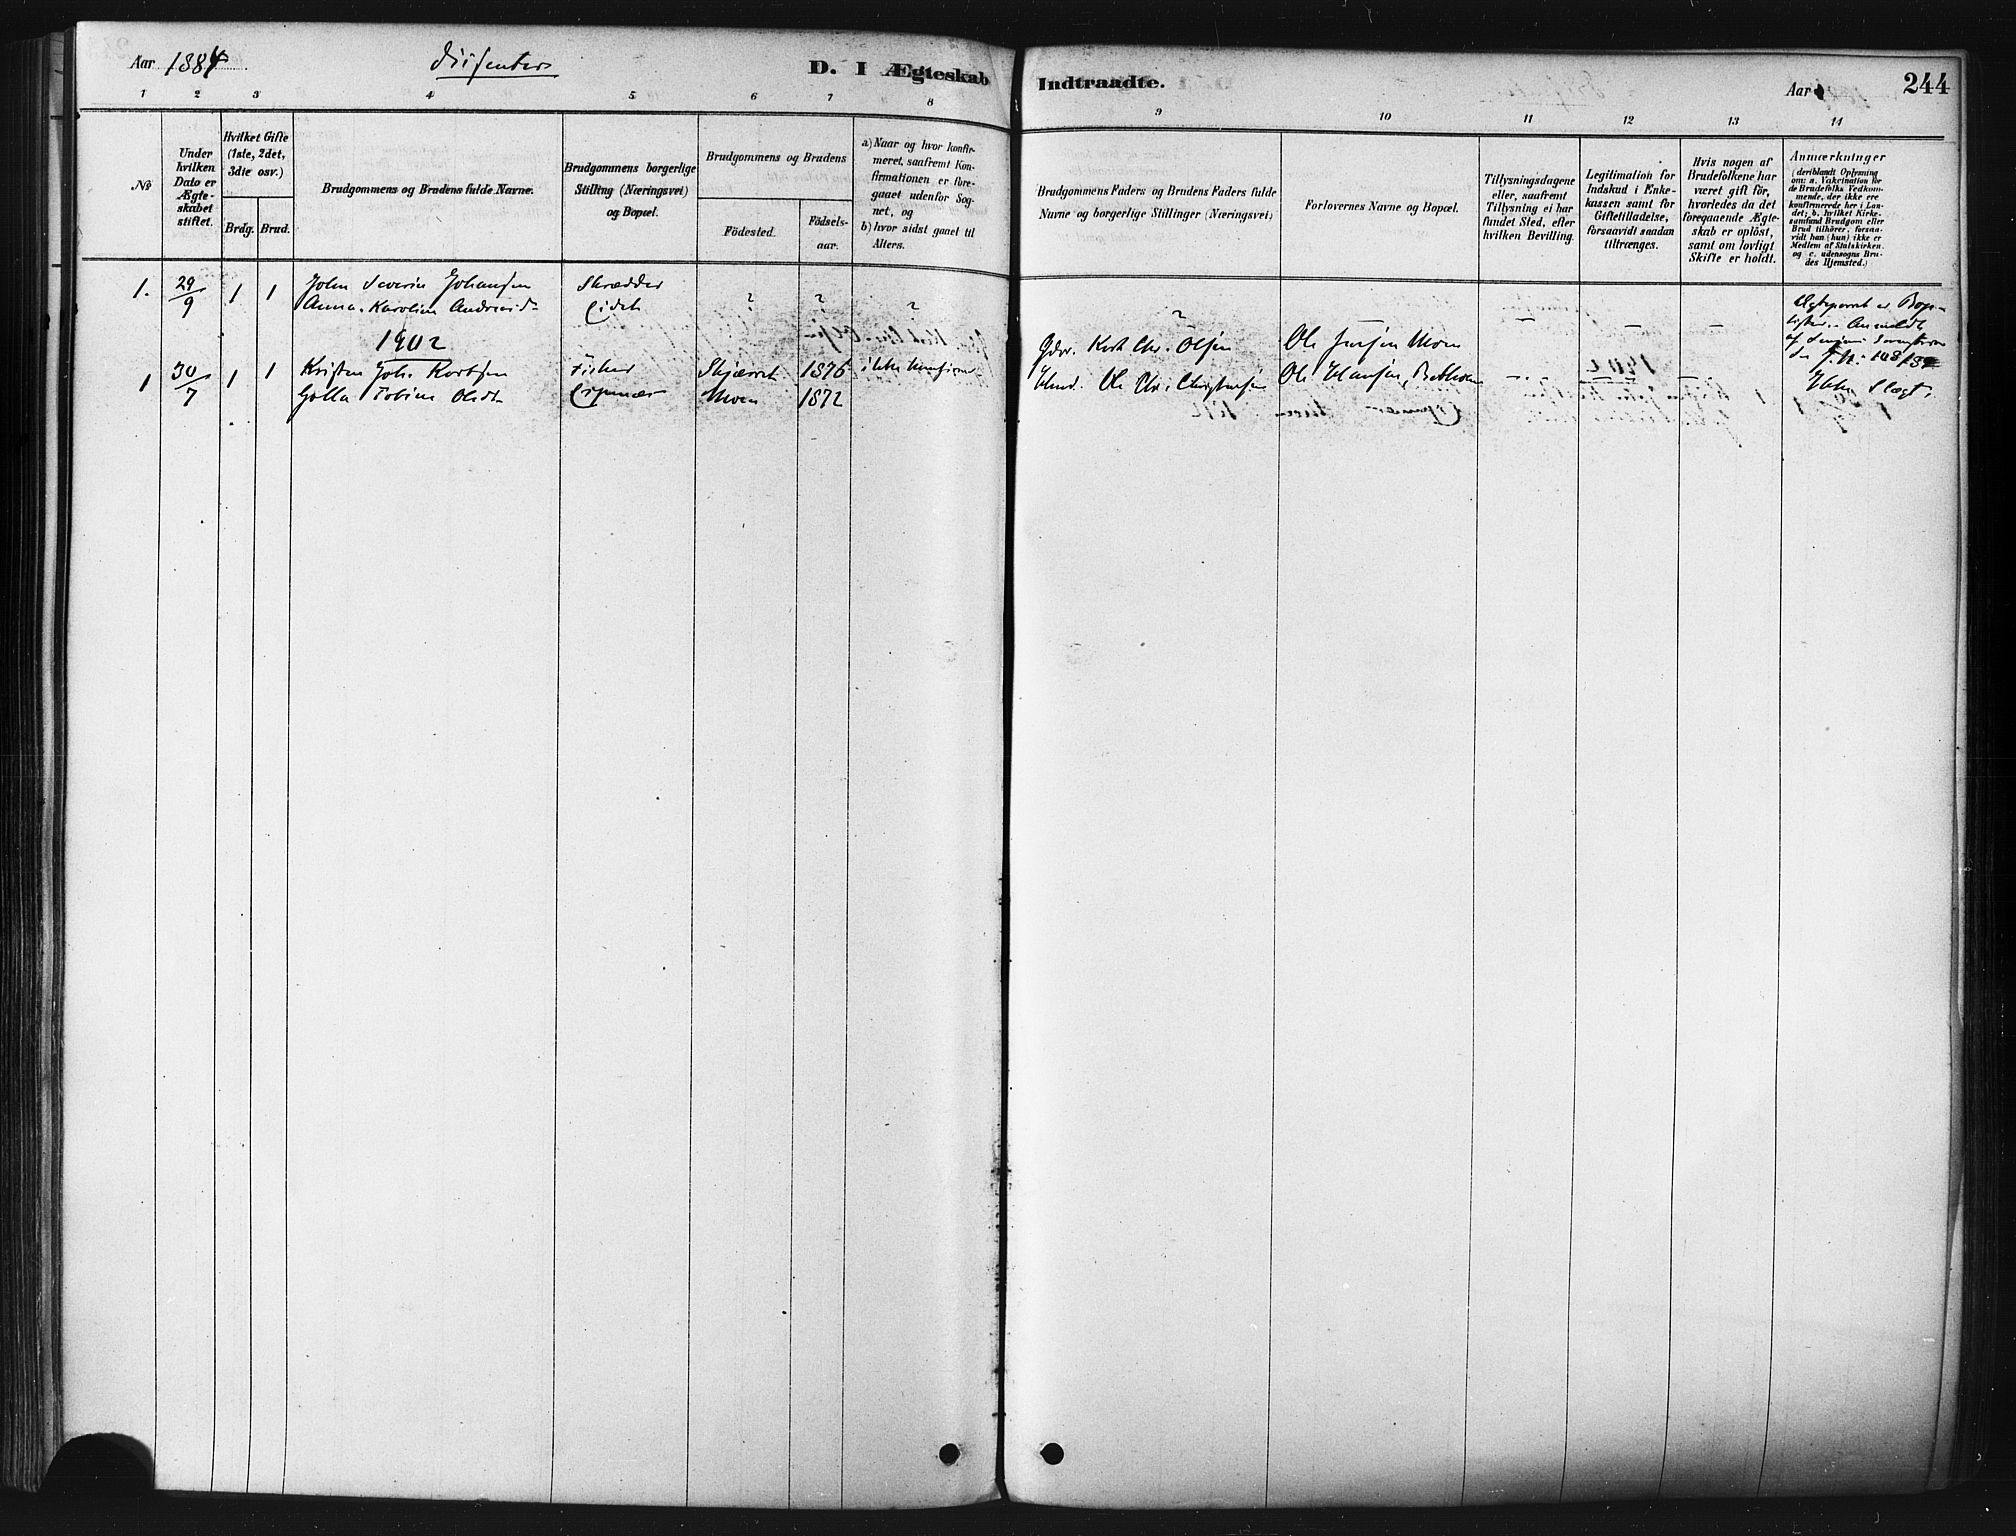 Aar 1884
Dissenter
D. I Ægteskab
Indtraadte.
Aar
244
1 2 3 4 5 6 7 8 9 10 11 12 13 14
No
Under hvilken Dato er Ægte-skabet stiftet.
Hvilket Gifte (1ste, 2det, 3die osv.)
Brdg. Brud.
Brudgommens og Brudens fulde Navne.
Brudgommens borgerlige Stilling (Næringsvei) og Bopæl.
Brudgommens og Brudens
Födested.
Födsels-aar.
a) Naar og hvor konfir-meret, saafremt Kon-firmationen er fore-gaaet udenfor Sog-net, og
b) hvor sidst gaaet til Alters.
Brudgommens Faders og Brudens Faders fulde Navne og borgerlige Stillinger (Næringsvei)
Forlovernes Navne og Bopæl.
Tillysningsdagene eller, saafremt Tillysning ei har fundet Sted, efter hvilken Bevilling.
Legitimation for Indskud i Enke-kassen samt for Giftetilladelse, forsaavidt saadan tiltrænges.
Hvis nogen af Brudefolkene har været gift för, hvorledes da det foregaaende Ægte-skab er oplöst, samt om lovligt Skifte er holdt.
Anmærkninger
(deriblandt Oplysning om: a. Vakcination for de Brudefolks Vedkom-mende, der ikke ere konfirmerede her i Lan-det; b. hvilket Kirke-samfund Brudgom eller Brud tilhörer, forsaa-vidt han (hun) ikke er Medlem af Statskirken, og c. udensogns Bru-des Hjemsted.)
1. 29/9 1 1 John Severin Johansen Skrædder
Anna Karoline Andreasd. Eidet ? ? ? ?
Ægteparret er Bap-
tister. Anmeldt
1902
1 30/7 1 1 Kristen Joh. Kortsen Fisker Skjærvet 1876 ikke konfirm
Gdbr. Kort Chr. Olsen Ole Jensen Moen
Tobine Olsdt. Moen 1872
Ole Chr. Christensen Ole Hansen,
Ikke Slægt.